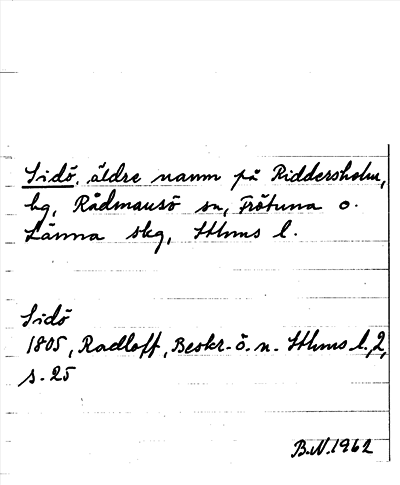 Sidö, äldre namn på Riddersholm,
hg, Rådmansö sn, Frötuna o.
Länna skg, Sthms l.
Sidö
1805, Radloff, Beskr. ö. n. Sthms l. 2,
s. 25
B.N. 1962